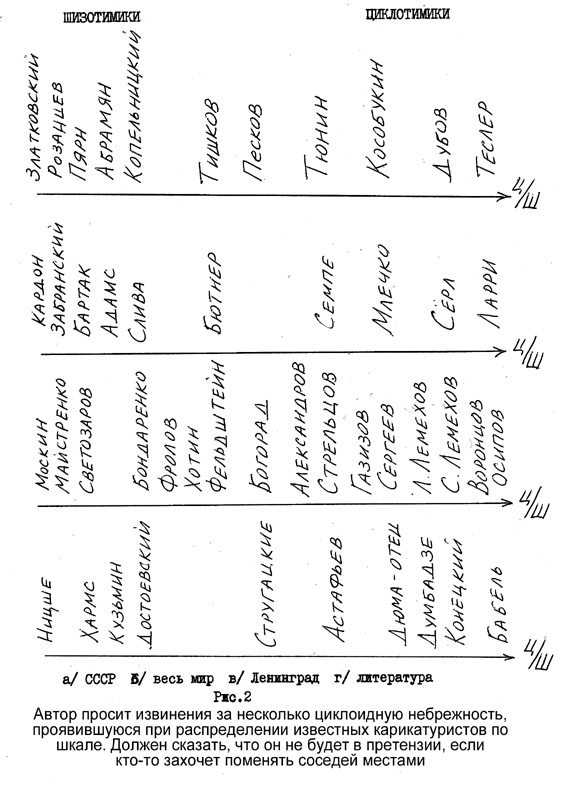 ШИЗОТИМИКИ ЦИКЛОТИМИКИ
ЗЛАТКОВСКИЙ РОЗАНЦЕВ ПЯРН АБРАМЯН КОПЕЛЬНИЦКИЙ ТИШКОВ ПЕСКОВ ТЮНИН КОСОБУКИН ДУБОВ ТЕСЛЕР
Ц/Ш
КАРДОН ЗАБРАНСКИЙ БАРТАК АДАМС СЛИВА БЮТНЕР СЕМПЕ МЛЕЧКО СЁРЛ ЛАРРИ
Ц/Ш
МОСКИН МАЙСТРЕНКО СВЕТОЗАРОВ БОНДАРЕНКО ФРОЛОВ ХОТИН ФЕЛЬДШТЕЙН БОГОРАД АЛЕКСАНДРОВ СТРЕЛЬЦОВ ГАЗИЗОВ СЕРГЕЕВ Л. ЛЕМЕХОВ С. ЛЕМЕХОВ ВОРОНЦОВ ОСИПОВ
Ц/Ш
НИЦШЕ ХАРМС КУЗЬМИН ДОСТОЕВСКИЙ СТРУГАЦКИЕ АСТАФЬЕВ ДЮМА-ОТЕЦ ДУМБАДЗЕ КОНЕЦКИЙ БАБЕЛЬ
Ц/Ш
а/ СССР Б/ весь мир в/ Ленинград г/ литература
Рис.2
Автор просит извинения за несколько циклоидную небрежность,
проявившуюся при распределении известных карикатуристов по
шкале. Должен сказать, что он не будет в претензии, если
кто-то захочет поменять соседей местами